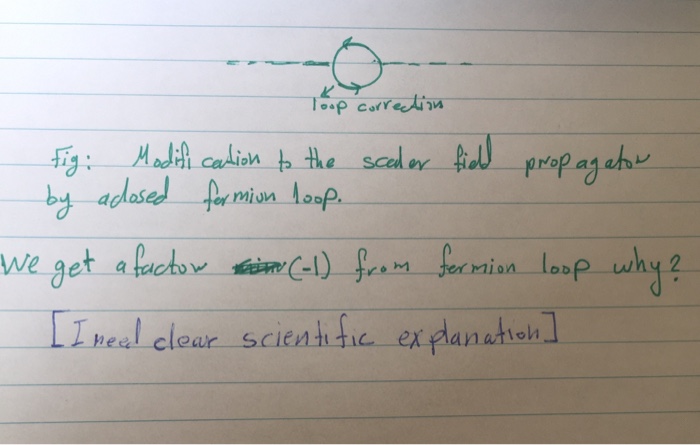 loop correction
Fig: Modification to the scalar field propagator
by a closed fermion loop.
We get a factor (-1) from fermion loop why?
[I need clear scientific explanation]